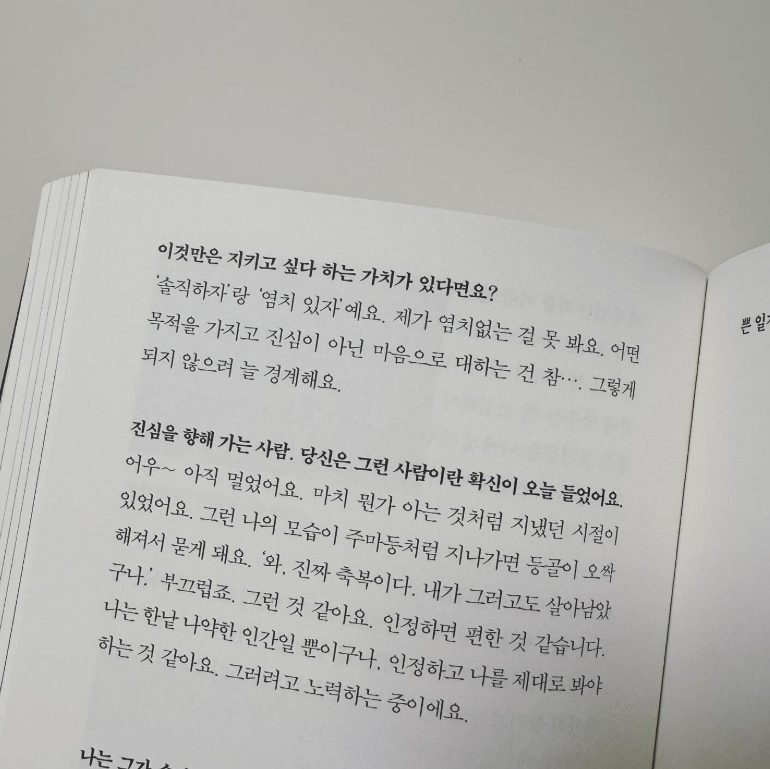 이것만은 지키고 싶다 하는 가치가 있다면요?
'솔직하자'랑 '염치 있자'예요. 제가 염치없는 걸 못 봐요. 어떤
목적을 가지고 진심이 아닌 마음으로 대하는 건 참…. 그렇게
되지 않으려 늘 경계해요.
진심을 향해 가는 사람. 당신은 그런 사람이란 확신이 오늘 들었어요.
어우~ 아직 멀었어요. 마치 뭔가 아는 것처럼 지냈던 시절이
있었어요. 그런 나의 모습이 주마등처럼 지나가면 등골이 오싹
해져서 묻게 돼요. '와, 진짜 축복이다. 내가 그러고도 살아남았
구나.' 부끄럽죠. 그런 것 같아요. 인정하면 편한 것 같습니다.
나는 한낱 나약한 인간일 뿐이구나, 인정하고 나를 제대로 봐야
하는 것 같아요. 그러려고 노력하는 중이에요.
나는 그가
쁜 일